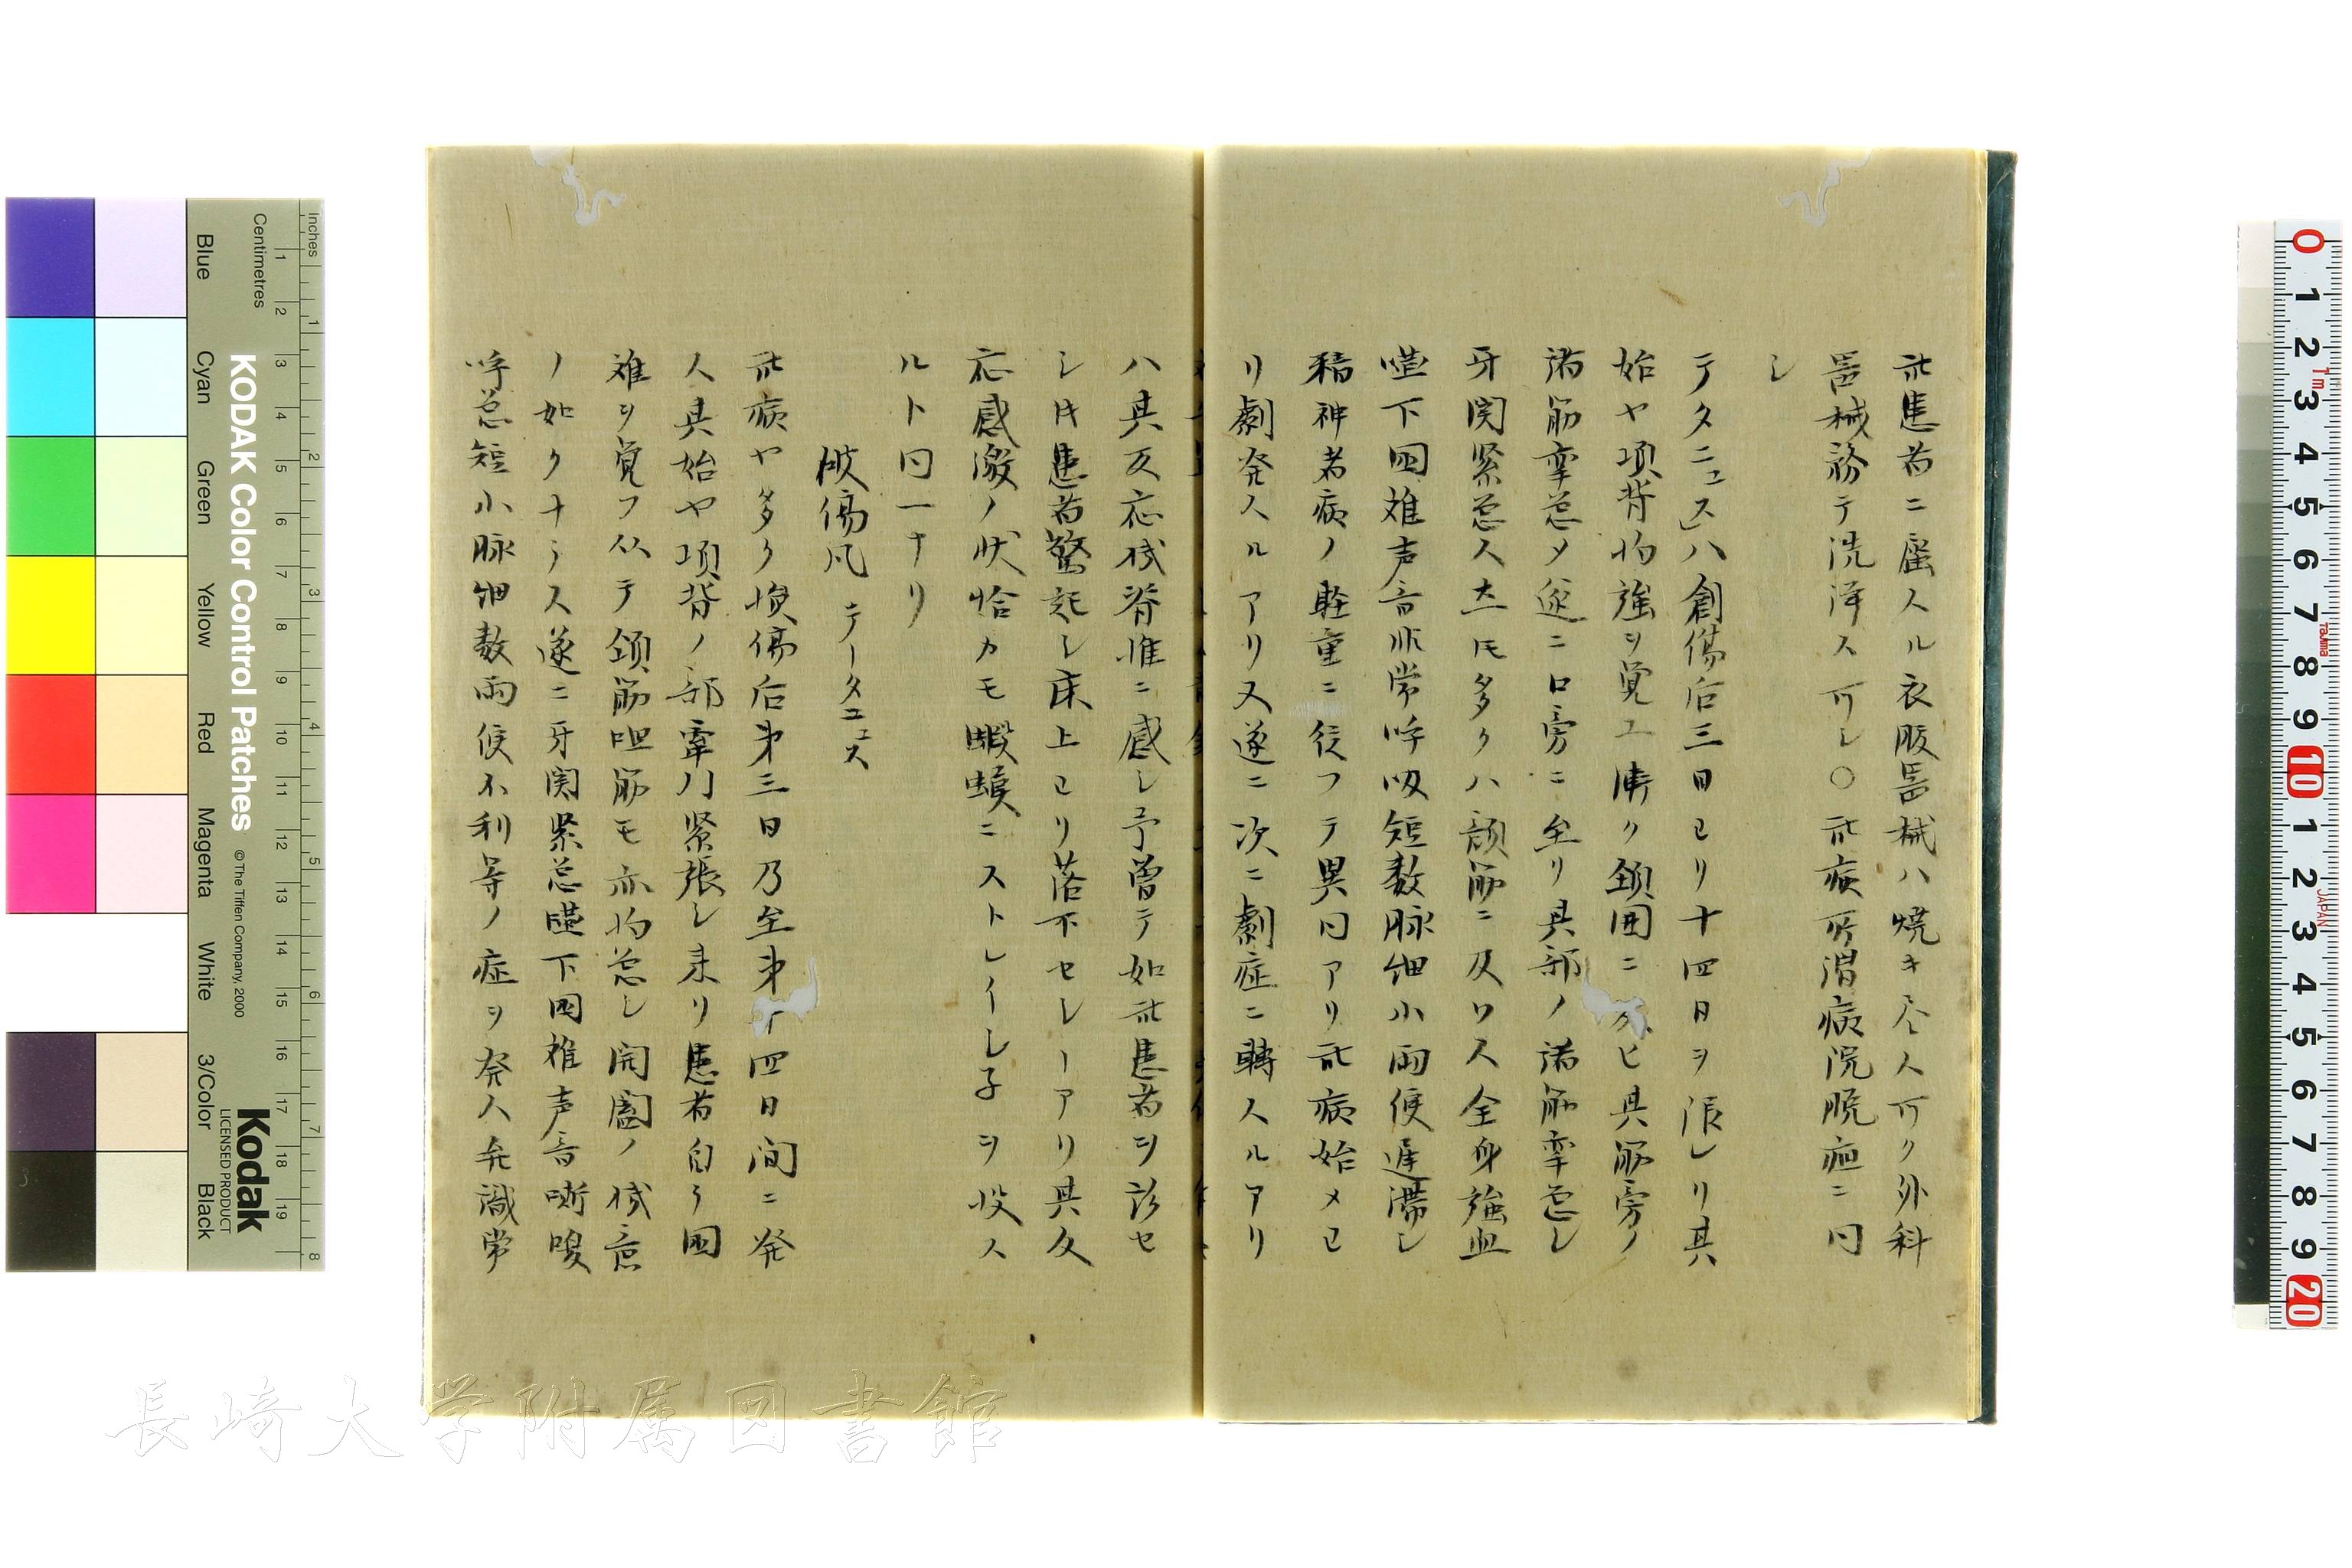 此患者ニ属スル衣服器械ハ焼キ尽ス可ク外科
器械務テ洗浄ス可シ○此病所謂病院脱疽ニ同
シ
テタニュス」ハ創傷后三日ヨリ十四日ヲ限レリ其
始ヤ項背拘強ヲ覚エ漸ク頚囲ニ及ヒ其筋旁ノ
諸筋挛急メ遂ニ口旁ニ至リ其部ノ諸筋挛急シ
牙関緊急ス圡モ多クハ顔筋ニ及ワス全身強血
噎下困難声音非常呼吸短数脉細小両便遅滞シ
精神者病ノ軽重ニ従フテ異同アリ此病始メヨ
リ劇発スルアリ又遂ニ次ニ劇症ニ轉スルアリ
ハ其反応機脊惟ニ感シ予曽テ如此患者ヲ診セ
シ片患者驚起シ床上ヨリ落下セシーアリ其反
応感激ノ状恰カモ蝦蟆ニストレイシ子ヲ投ス
ルト同一ナリ
破傷風 テータニュス
此病ヤ多ク損傷后第三日乃至第十四日間ニ発
ス其始ヤ項背ノ部牽引緊張シ来リ患者自ラ困
難ヲ覚フ以テ頚筋咀筋モ亦拘急シ開闔ノ機意
ノ如クナラス遂ニ牙関緊急嚥下困難声音嘶嗄
呼急短小脉細数両便不利等ノ症ヲ発ス弁識常
長崎大学附属図書館
KODAK Color Control Patches
© The Tiffen Company, 2000
Kodak
LICENSED PRODUCT
Inches
1 2 3 4 5 6 7 8
Centimetres
1 2 3 4 5 6 7 8 9 10 11 12 13 14 15 16 17 18 19
Blue
Cyan
Green
Yellow
Red
Magenta
White
3/Color
Black
0 1 2 3 4 5 6 7 8 9 10 1 2 3 4 5 6 7 8 9 20
1m
Tajima
JAPAN